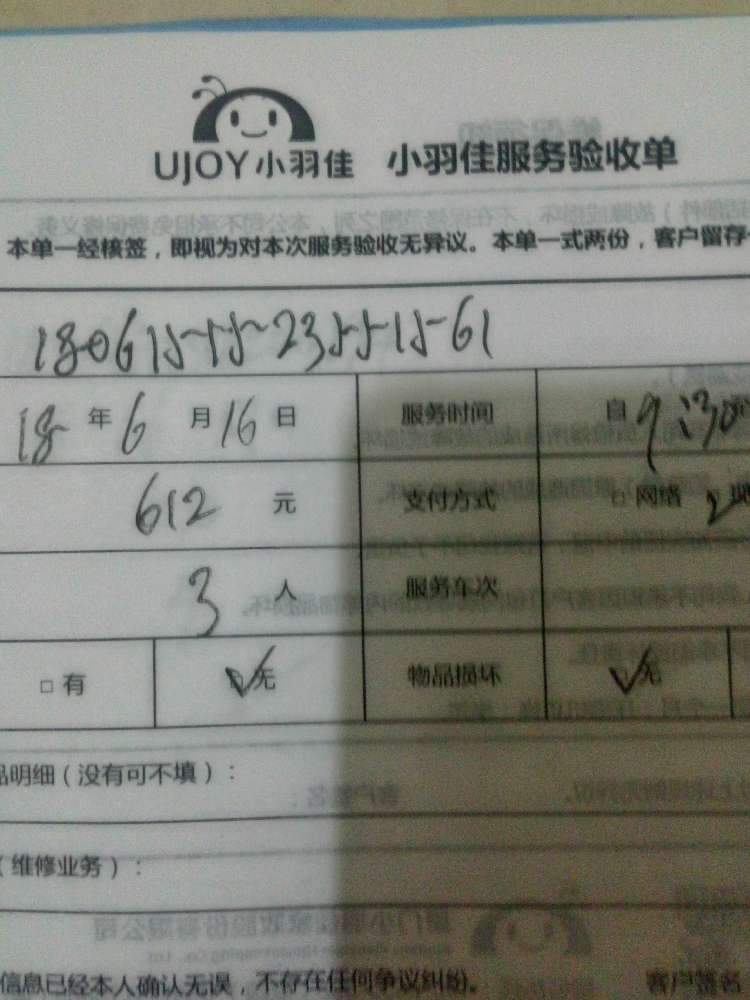 UJOY小羽佳 小羽佳服务验收单
本单一经核签，即视为对本次服务验收无异议。本单一式两份，客户留存
18年6月16日 服务时间 自9:30
612元 支付方式 □网络
3人 服务车次
□有 ☑无 物品损坏 ☑无
品明细（没有可不填）：
（维修业务）：
信息已经本人确认无误，不存在任何争议纠纷。 客户签名